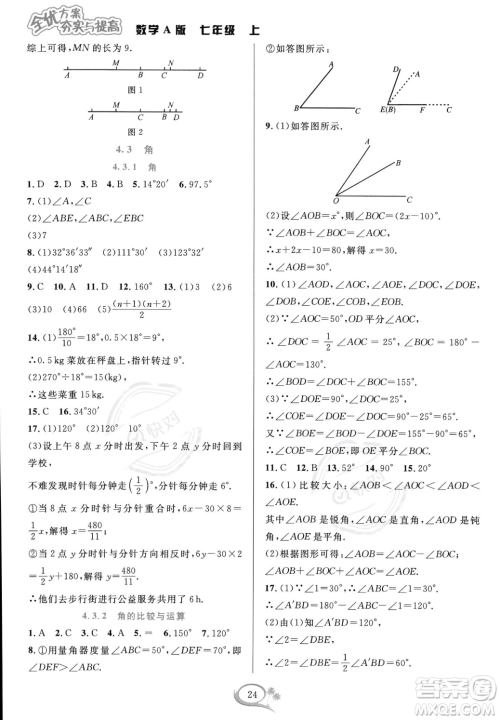 全优方案
夯实与提高
数学A版 七年级 上
综上可得,MN的长为9.
A D B C
图1
A B D C
图2
4.3 角
4.3.1 角
1.D 2.D 3.B 4.D 5.14°20′ 6.97.5°
7.(1)∠A,∠C
(2)∠ABE,∠ABC,∠CBE
8.(1)32°36′33″ (2)111°30′
(3)22°30′ (4)44°20′
9.C 10.A 11.D 12.160°
13.(1)3 (2)6 (3)10 (4)66 (5)(n+1)(n+2)/2
14.(1)180°/10=18°,0.5×18°=9°
∴0.5 kg菜放在秤盘上,指针转过9°.
(2)270°÷18°=15(kg).
∴这些菜重15 kg.
15.C 16.34°30′
17.(1)120° (2)150°
(3)设上午8点x分时出发,下午2点y分时回到
学校,
不难发现时针每分钟走(1/2)°,分针每分钟走6°.
①当8点x分时针与分针重合时,6x-240=
1/2x,解得x=480/11;
②当2点y分时针与分针方向相反时,6y-30=
1/2y+180,解得y=480/11.
∴他们去步行街进行公益服务共用了6 h.
4.3.2 角的比较与运算
1.A 2.C 3.> 4.> 5.150° 6.65° 7.D
8.①用量角器度量∠ABC=50°,∠DEF=70°.
即∠DEF>∠ABC.
②如答图所示:
A
B C
A D
E(B) F C
9.(1)如答图所示.
A
B
O C
(2)设∠AOB=x°,则∠BOC=(2x-10)°.
∵∠AOB+∠BOC=∠AOC=80°,
∴x+2x-10=80.解得x=30.
∴∠AOB=30°.
10.(1)∠AOD,∠AOC,∠AOE,∠DOC,∠DOE,
∠DOB,∠COE,∠COB,∠EOB
(2)∵∠AOC=50°,OD平分∠AOC,
∴∠DOC=1/2∠AOC=25°,∠BOC=180°-
∠AOC=130°.
∴∠BOD=∠DOC+∠BOC=155°.
11.C 12.A 13.52° 14.90° 15.120°
16.(1)比较大小:∠AOB<∠AOC<∠AOD<
∠AOE.
其中∠AOB是锐角,∠AOC是直角,∠AOD是钝
角,∠AOE是平角.
(2)根据图形可得∠AOC=∠AOB+∠BOC,
∠AOC=∠AOD-∠COD,∠AOC=∠AOE-
∠COE.
17.(1)∵∠A′BD=∠ABD=30°,
∴∠A′BD=30°.
(2)由(1)知∠A′BD=30°,
又∵∠DBE=∠CBE,
∴∠DBE=1/2∠CBD.
24
答案圈
MXQE.COM